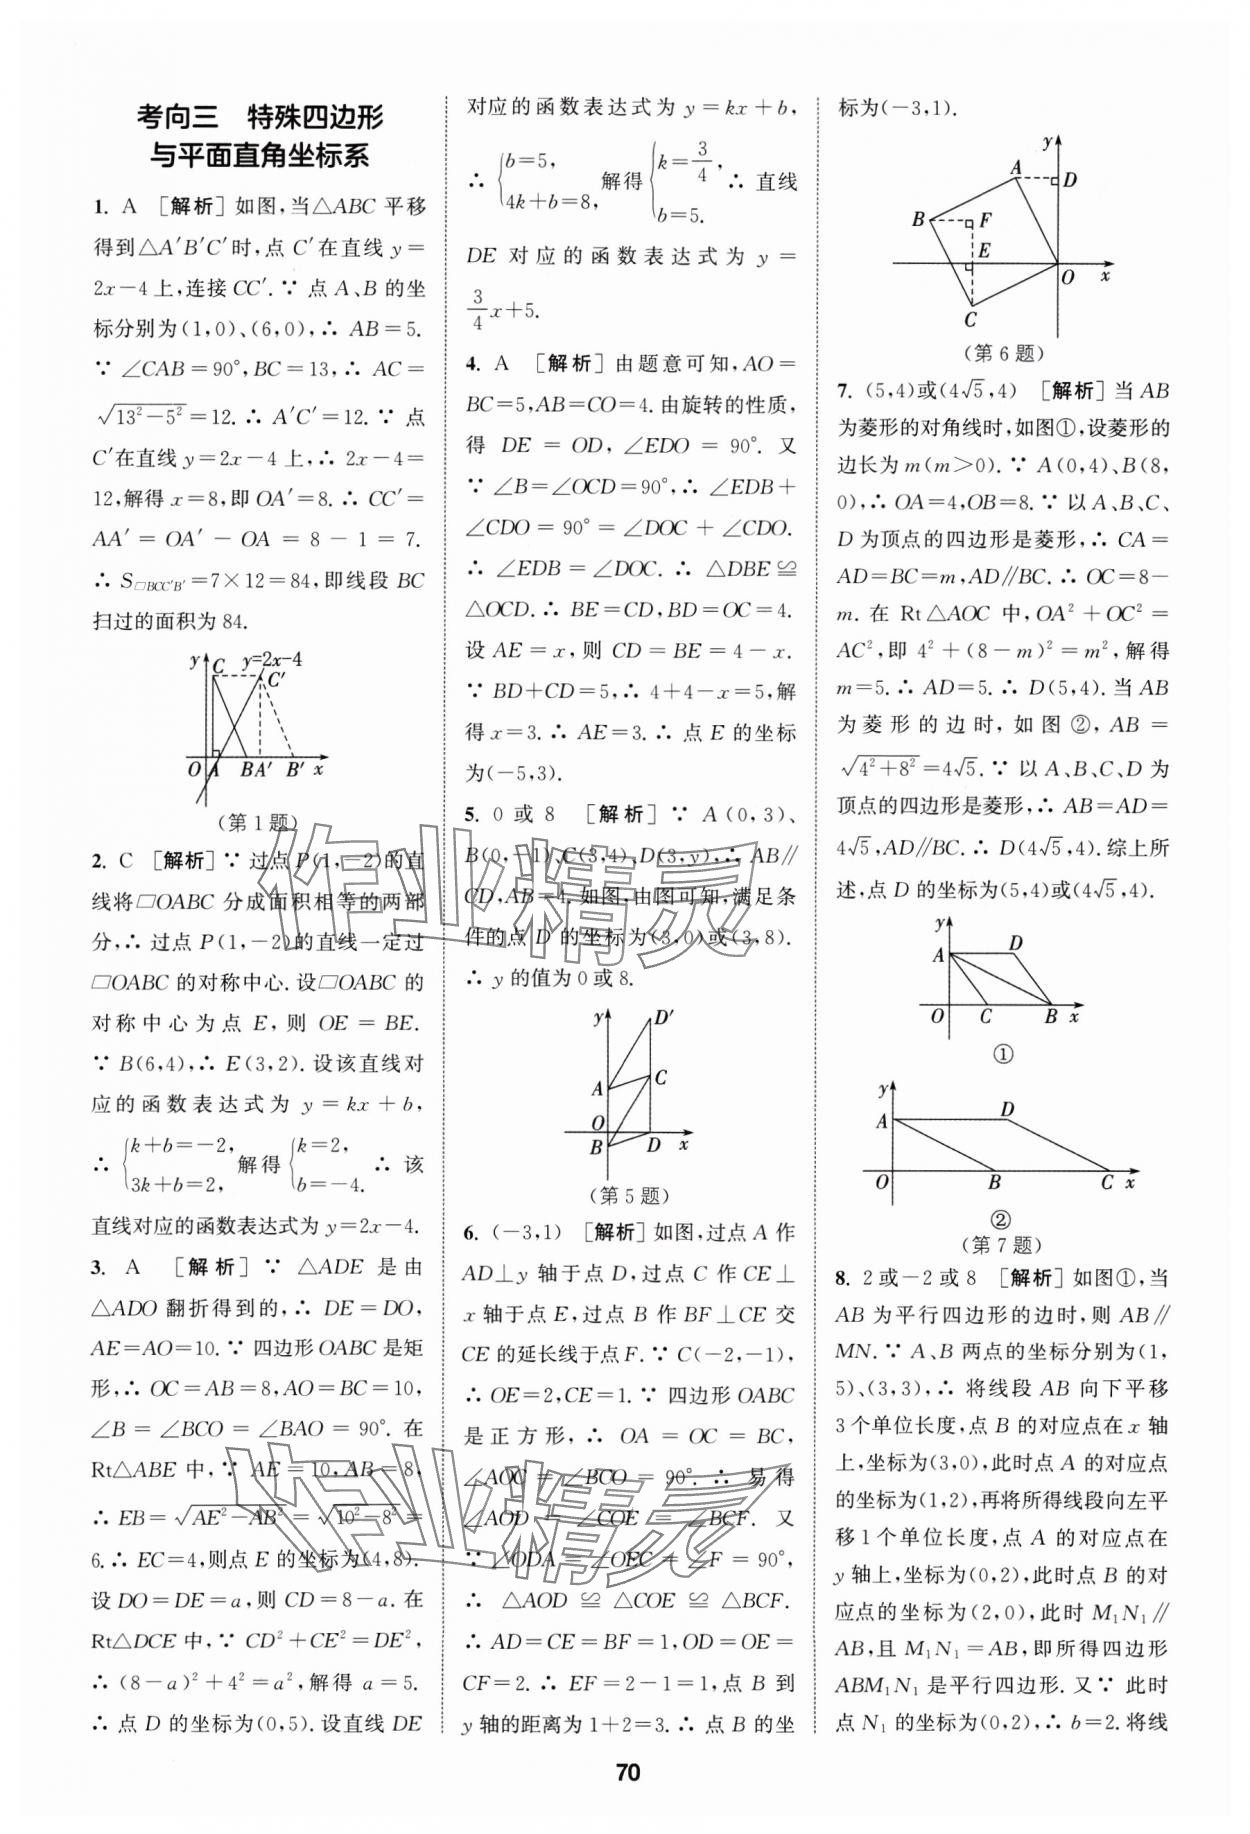 考向三　特殊四边形
与平面直角坐标系
1. A ［解析］如图,当△ABC平移
得到△A′B′C′时,点C′在直线y=
2x-4上,连接CC′.∵ 点A、B的坐
标分别为(1,0)、(6,0),∴ AB=5.
∵ ∠CAB=90°,BC=13,∴ AC=
√(13²-5²)=12.∴ A′C′=12.∵ 点
C′在直线y=2x-4上,∴ 2x-4=
12,解得x=8,即OA′=8.∴ CC′=
AA′=OA′-OA=8-1=7.
∴ S▱BCC′B′=7×12=84,即线段BC
扫过的面积为84.
y C y=2x-4
C′
O A B A′ B′ x
(第1题)
2. C ［解析］∵ 过点P(1,-2)的直
线将▱OABC分成面积相等的两部
分,∴ 过点P(1,-2)的直线一定过
▱OABC的对称中心.设▱OABC的
对称中心为点E,则OE=BE.
∵ B(6,4),∴ E(3,2).设该直线对
应的函数表达式为y=kx+b,
∴ {k+b=-2, 3k+b=2, 解得 {k=2, b=-4. ∴ 该
直线对应的函数表达式为y=2x-4.
3. A ［解析］∵ △ADE是由
△ADO翻折得到的,∴ DE=DO,
AE=AO=10.∵ 四边形OABC是矩
形,∴ OC=AB=8,AO=BC=10,
∠B=∠BCO=∠BAO=90°.在
Rt△ABE中,∵ AE=10,AB=8,
∴ EB=√(AE²-AB²)=√(10²-8²)=
6.∴ EC=4,则点E的坐标为(4,8).
设DO=DE=a,则CD=8-a.在
Rt△DCE中,∵ CD²+CE²=DE²,
∴ (8-a)²+4²=a²,解得a=5.
∴ 点D的坐标为(0,5).设直线DE
对应的函数表达式为y=kx+b,
∴ {b=5, 4k+b=8, 解得 {k=3/4, b=5. ∴ 直线
DE对应的函数表达式为y=
3/4 x+5.
4. A ［解析］由题意可知,AO=
BC=5,AB=CO=4.由旋转的性质,
得DE=OD,∠EDO=90°.又
∵ ∠B=∠OCD=90°,∴ ∠EDB+
∠CDO=90°=∠DOC+∠CDO.
∴ ∠EDB=∠DOC.∴ △DBE≌
△OCD.∴ BE=CD,BD=OC=4.
设AE=x,则CD=BE=4-x.
∵ BD+CD=5,∴ 4+4-x=5,解
得x=3.∴ AE=3.∴ 点E的坐标
为(-5,3).
5. 0或8 ［解析］∵ A(0,3)、
B(0,-1)、C(3,4)、D(3,y),∴ AB∥
CD,AB=4.如图,由图可知,满足条
件的点D的坐标为(3,0)或(3,8).
∴ y的值为0或8.
y D′
A C
O
B D x
(第5题)
6. (-3,1) ［解析］如图,过点A作
AD⊥y轴于点D,过点C作CE⊥
x轴于点E,过点B作BF⊥CE交
CE的延长线于点F.∵ C(-2,-1),
∴ OE=2,CE=1.∵ 四边形OABC
是正方形,∴ OA=OC=BC,
∠AOC=∠BCO=90°.∴ 易得
∠AOD=∠COE=∠BCF.又
∵ ∠ODA=∠OEC=∠F=90°,
∴ △AOD≌△COE≌△BCF.
∴ AD=CE=BF=1,OD=OE=
CF=2.∴ EF=2-1=1,点B到
y轴的距离为1+2=3.∴ 点B的坐
标为(-3,1).
y
A D
B F
E
O x
C
(第6题)
7. (5,4)或(4√5,4) ［解析］当AB
为菱形的对角线时,如图①,设菱形的
边长为m(m>0).∵ A(0,4)、B(8,
0),∴ OA=4,OB=8.∵ 以A、B、C、
D为顶点的四边形是菱形,∴ CA=
AD=BC=m,AD∥BC.∴ OC=8-
m.在Rt△AOC中,OA²+OC²=
AC²,即4²+(8-m)²=m²,解得
m=5.∴ AD=5.∴ D(5,4).当AB
为菱形的边时,如图②,AB=
√(4²+8²)=4√5.∵ 以A、B、C、D为
顶点的四边形是菱形,∴ AB=AD=
4√5,AD∥BC.∴ D(4√5,4).综上所
述,点D的坐标为(5,4)或(4√5,4).
y
A D
O C B x
①
y
A D
O B C x
②
(第7题)
8. 2或-2或8 ［解析］如图①,当
AB为平行四边形的边时,则AB∥
MN.∵ A、B两点的坐标分别为(1,
5)、(3,3),∴ 将线段AB向下平移
3个单位长度,点B的对应点在x轴
上,坐标为(3,0),此时点A的对应点
的坐标为(1,2),再将所得线段向左平
移1个单位长度,点A的对应点在
y轴上,坐标为(0,2),此时点B的对
应点的坐标为(2,0),此时M₁N₁∥
AB,且M₁N₁=AB,即所得四边形
ABM₁N₁是平行四边形.又∵ 此时
点N₁的坐标为(0,2),∴ b=2.将线
70
作业精灵
作业精灵